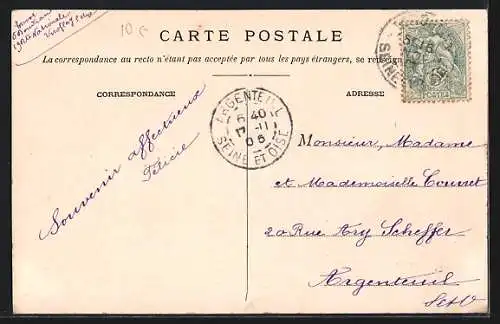 10 c
CARTE POSTALE
La correspondance au recto n'étant pas acceptée par tous les pays étrangers, se renseigner
CORRESPONDANCE
ADRESSE
ARGENTEUIL
6 40
17 -11
05
SEINE ET OISE
Souvenir affectueux
Félicie
Monsieur, Madame
et Mademoiselle Couvret
20 Rue Ary Scheffer
Argenteuil
S et O